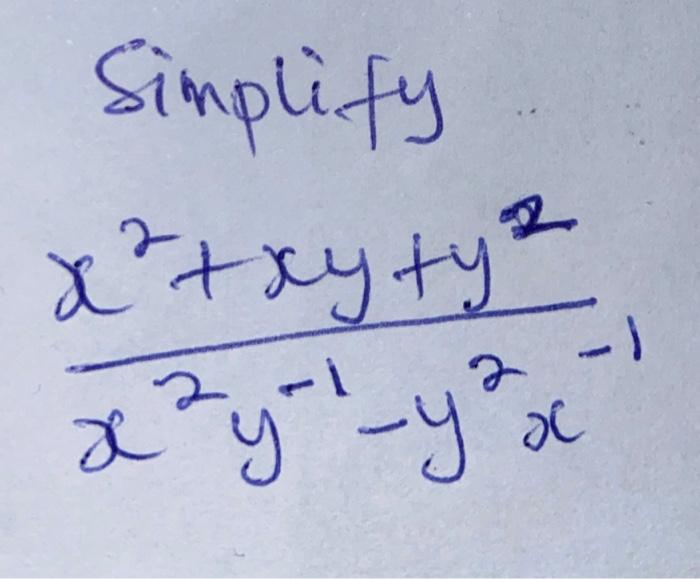 Simplify
x²+xy+y²
x²y⁻¹-y²x⁻¹